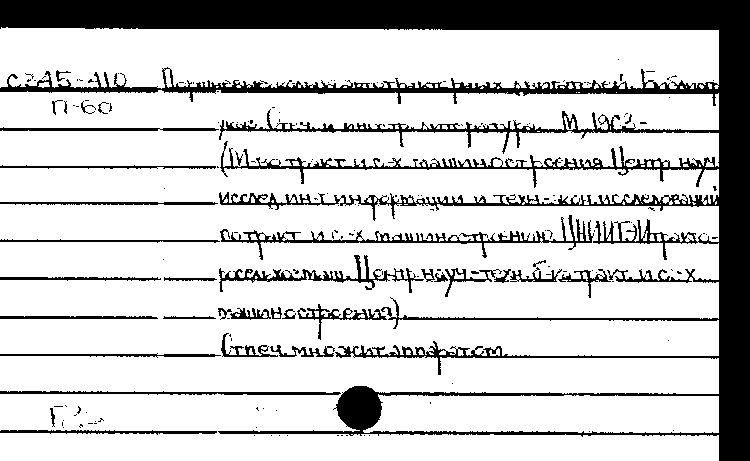 с345-410 Поршневые кольца автотракторных двигателей. Библиогр
П-60
указ. Отеч. и иностр. литература. М., 1963-
(М-во тракт. и с.-х. машиностроения. Центр. науч.-
исслед. ин-т информации и техн.-экон. исследований
по тракт. и с.-х. машиностроению. ЦНИИТЭИтракто-
росельхозмаш. Центр. науч.-техн. б-ка тракт. и с.-х.
машиностроения).
Отпеч. множит. аппаратом